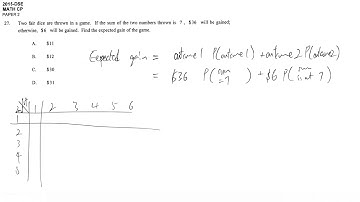 2015-DSE
MATH CP
PAPER 2
27. Two fair dice are thrown in a game. If the sum of the two numbers thrown is 7, $36 will be gained;
otherwise, $6 will be gained. Find the expected gain of the game.
A. $11
B. $12
C. $30
D. $31
Expected gain = outcome 1 P(outcome 1) + outcome 2 P(outcome 2)
= $36 P(sum = 7) + $6 P(sum is not 7)
1 2 3 4 5 6
1
2
3
4